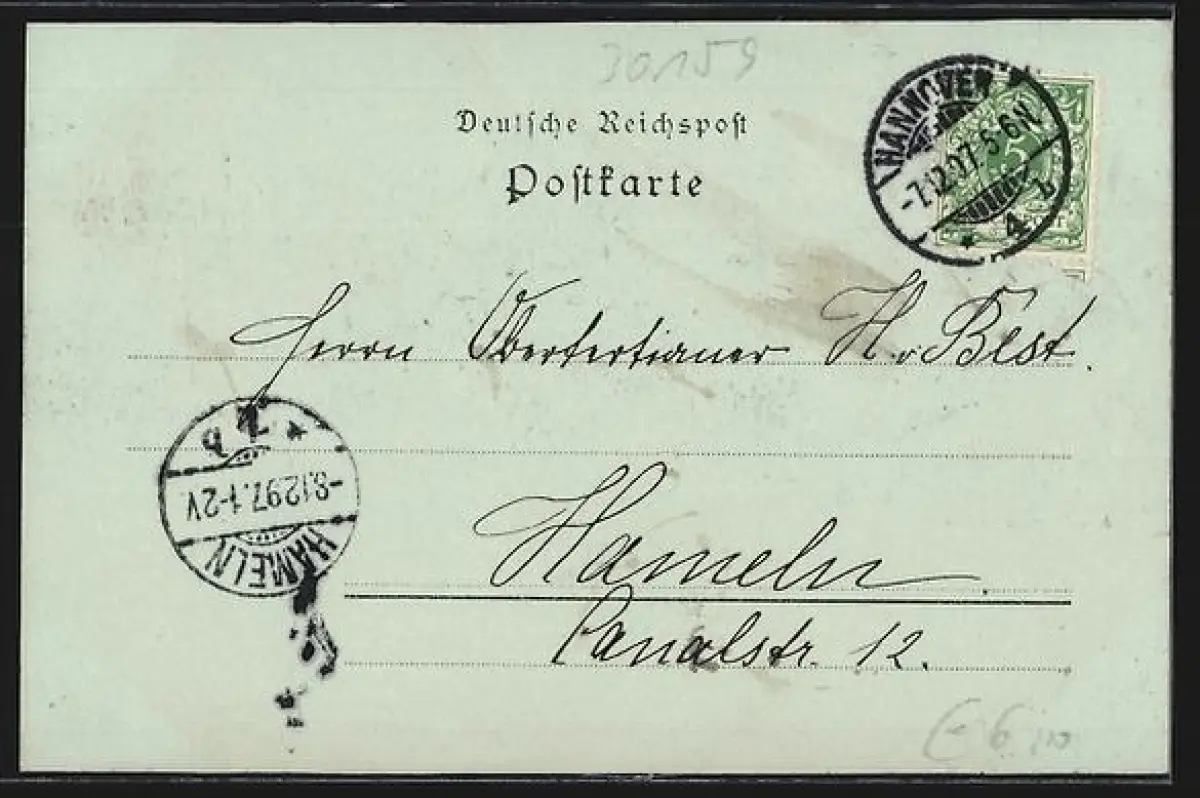 30159
Deutsche Reichspost
Postkarte
HANNOVER
-7.12.97.5-6N.
* 4 b
5
Herrn Obertertianer H. v. Best.
* 2 b
-8.12.97.1-2V
HAMELN
Hameln
Canalstr. 12.